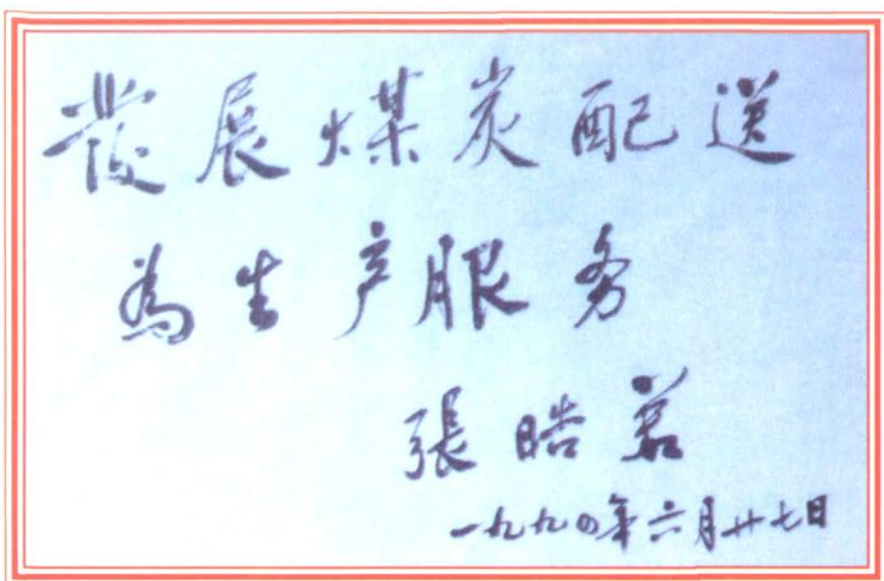 發展煤炭配送
為生产服务
張皓若
一九九四年六月廿七日